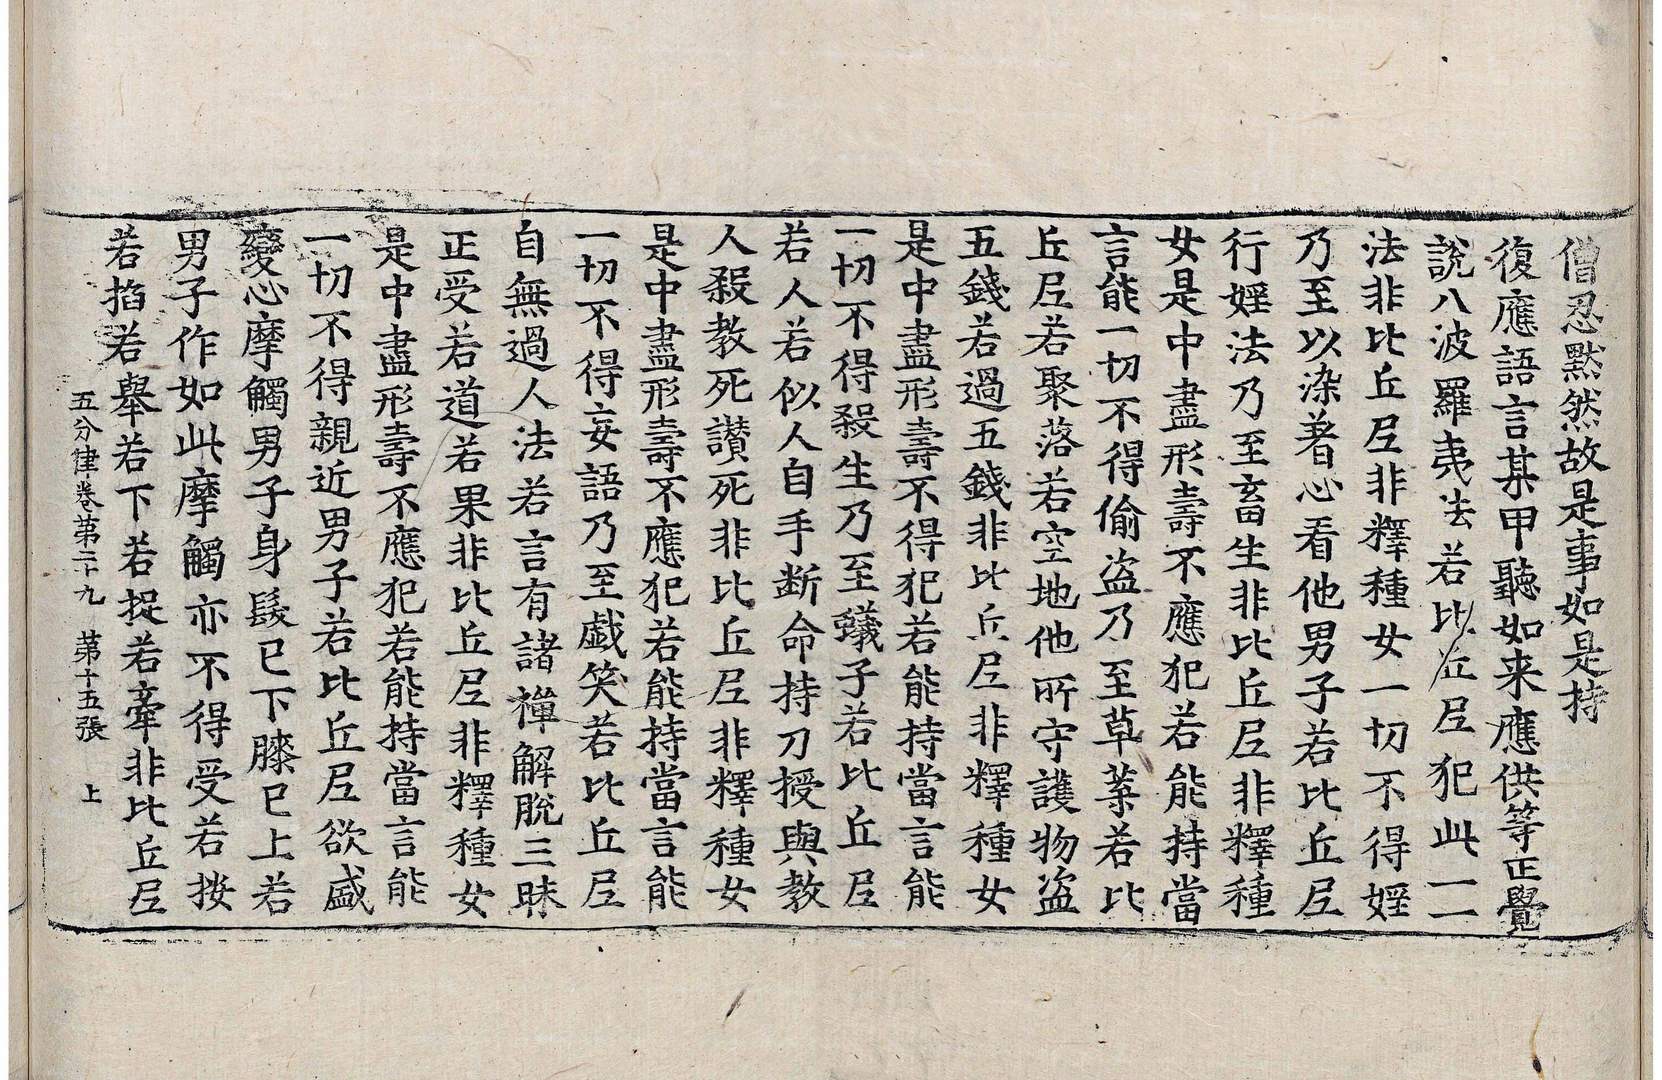 僧忍黙然故是事如是持
復應語言某甲聽如来應供等正覺
說八波羅夷法若比丘尼犯此一一
法非比丘尼非釋種女一切不得婬
乃至以染著心看他男子若比丘尼
行婬法乃至畜生非比丘尼非釋種
女是中盡形壽不應犯若能持當
言能一切不得偷盗乃至草葉若比
丘尼若聚落若空地他所守護物盗
五錢若過五錢非比丘尼非釋種女
是中盡形壽不得犯若能持當言能
一切不得殺生乃至蟻子若比丘尼
若人若似人自手断命持刀授與教
人殺教死讃死非比丘尼非釋種女
是中盡形壽不應犯若能持當言能
一切不得妄語乃至戯笑若比丘尼
自無過人法若言有諸禅解脫三昧
正受若道若果非比丘尼非釋種女
是中盡形壽不應犯若能持當言能
一切不得親近男子若比丘尼欲盛
變心摩觸男子身髮已下膝已上若
男子作如此摩觸亦不得受若按
若掐若舉若下若捉若牽非比丘尼
五分律卷第二十九 第十五張 上